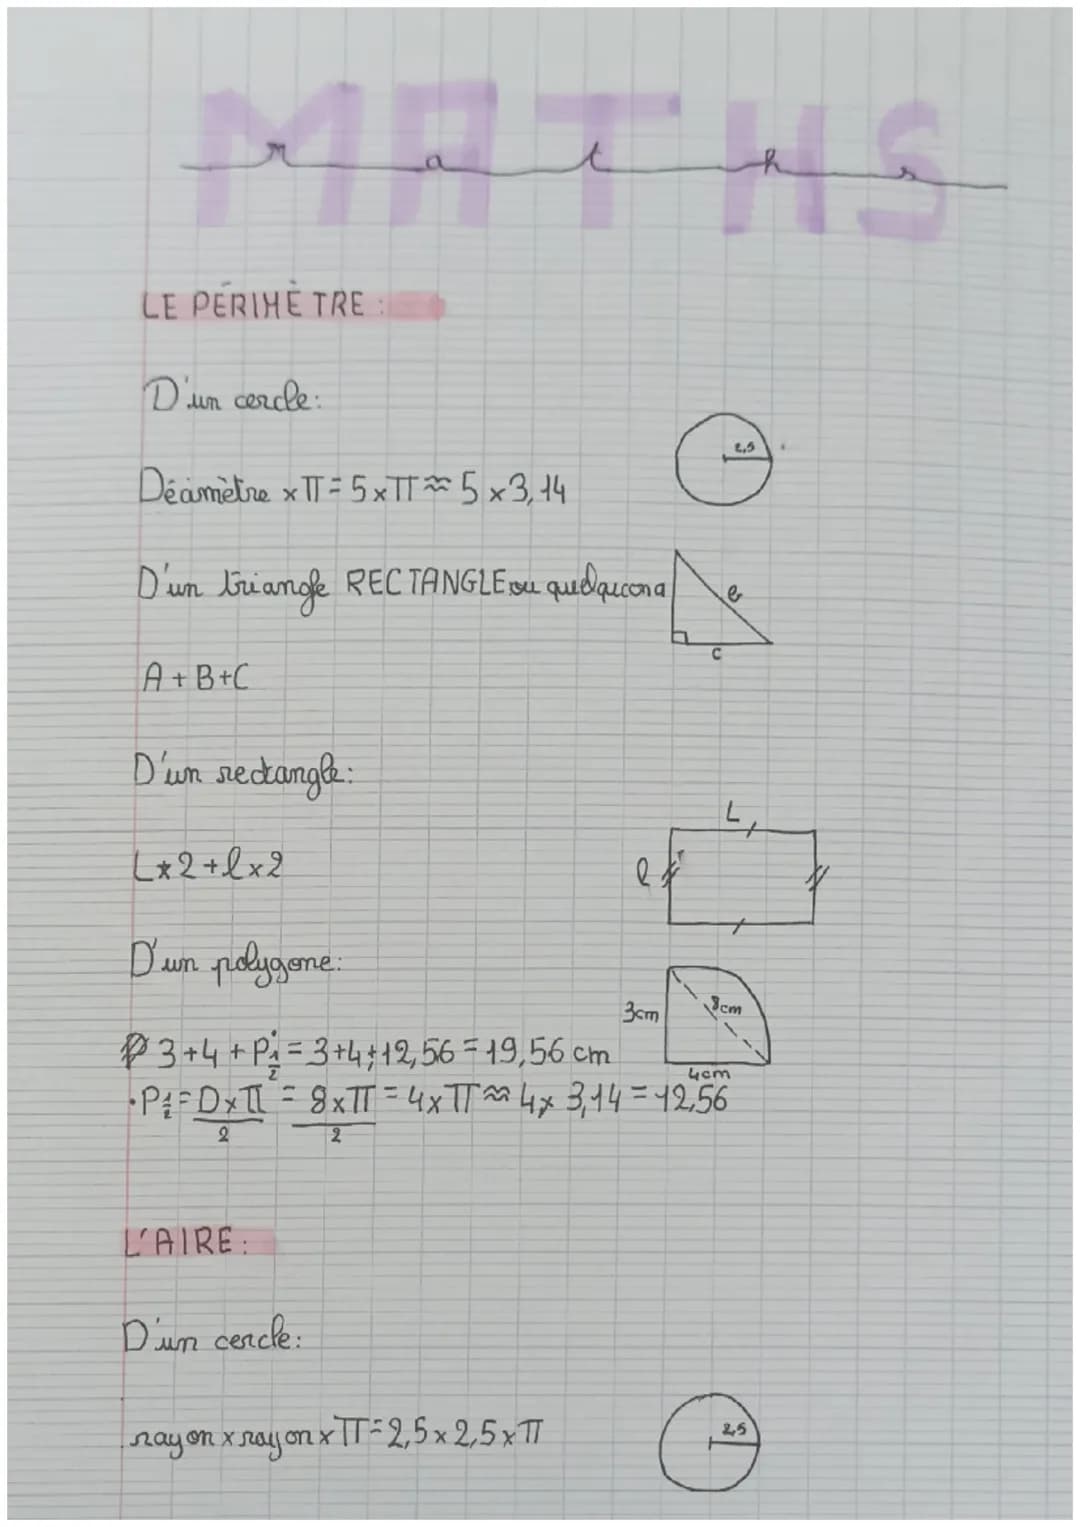 MATHS
maths
LE PÉRIMÈTRE :
D'un cercle:
2,5
Déamètre x π = 5 x π ≈ 5 x 3,14
D'un triangle RECTANGLE ou quelqucona
b
c
A + B + C
D'un rectangle:
L
L x 2 + l x 2
l
D'un polygone:
3cm
8cm
4cm
P 3 + 4 + P½ = 3 + 4 + 12,56 = 19,56 cm
• P½ = D x π / 2 = 8 x π / 2 = 4 x π ≈ 4 x 3,14 = 12,56
L'AIRE :
D'un cercle:
rayon x rayon x π = 2,5 x 2,5 x π
2,5